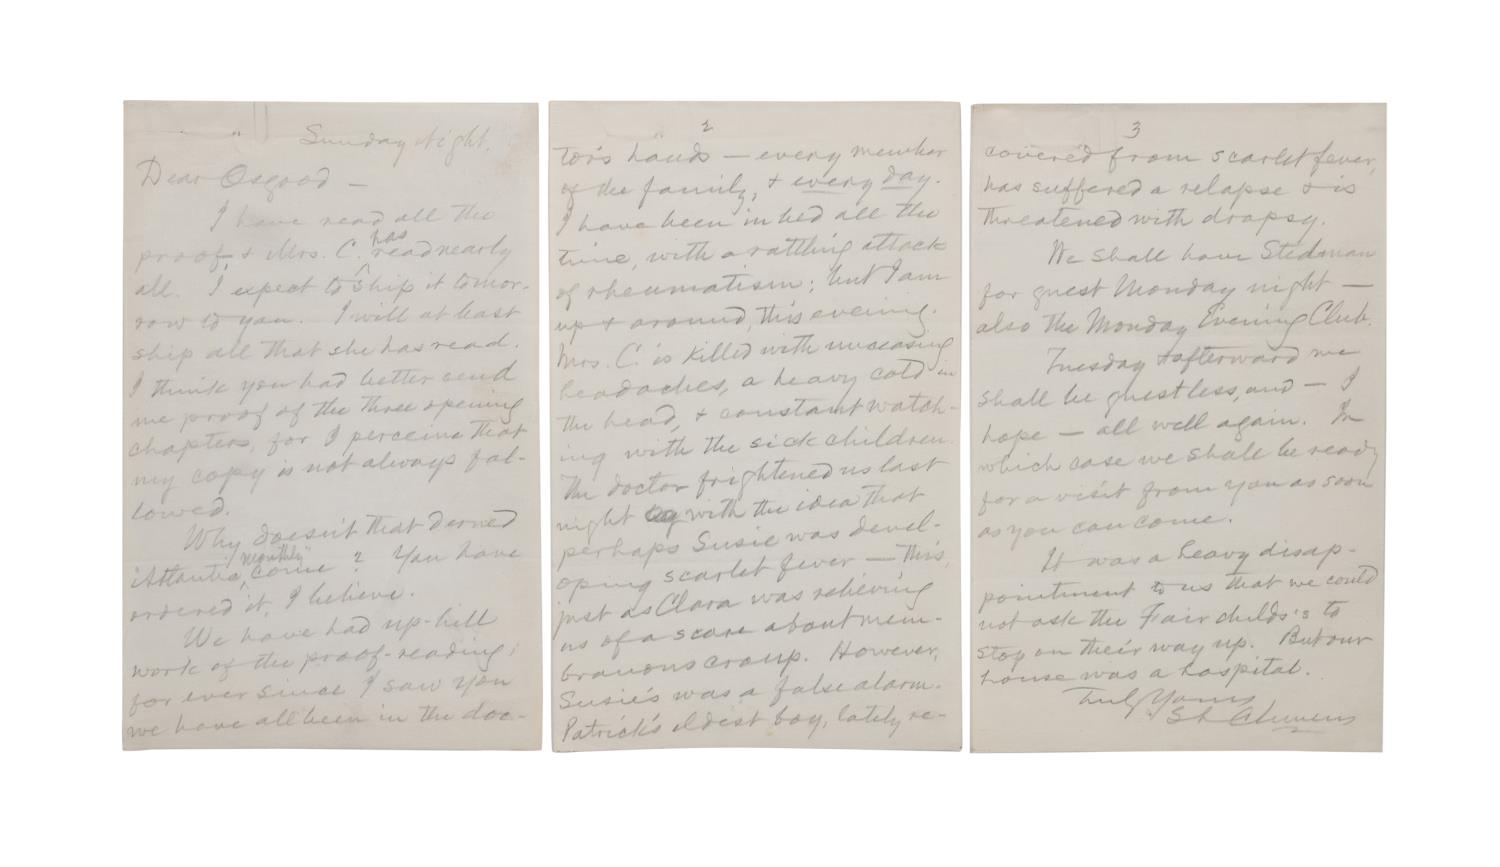 Sunday Night.
Dear Osgood —
I have read all the
proof, & Mrs. C. has read nearly
all. I expect to ship it tomor-
row to you. I will at least
ship all that she has read.
I think you had better send
me proof of the three opening
chapters, for I perceive that
my copy is not always fol-
lowed.
Why doesn't that derned
Atlantic monthly come? You have
ordered it, I believe.
We have had up-hill
work of the proof-reading;
for ever since I saw you
we have all been in the doc-
2
tor's hands — every member
of the family, & every day.
I have been in bed all the
time, with a rattling attack
of rheumatism; but I am
up & around, this evening.
Mrs. C. is killed with unceasing
headaches, a heavy cold in
the head, & constant watch-
ing with the sick children.
The doctor frightened us last
night with the idea that
perhaps Susie was devel-
oping scarlet fever — this,
just as Clara was relieving
us of a scare about mem-
branous croup. However,
Susie's was a false alarm.
Patrick's eldest boy, lately re-
3
covered from scarlet fever,
has suffered a relapse & is
threatened with dropsy.
We shall have Stedman
for guest Monday night —
also the Monday Evening Club.
Tuesday & afterward we
shall be guestless, and — I
hope — all well again. In
which case we shall be ready
for a visit from you as soon
as you can come.
It was a heavy disap-
pointment to us that we could
not ask the Fairchilds's to
stop on their way up. But our
house was a hospital.
Truly Yours
S L Clemens